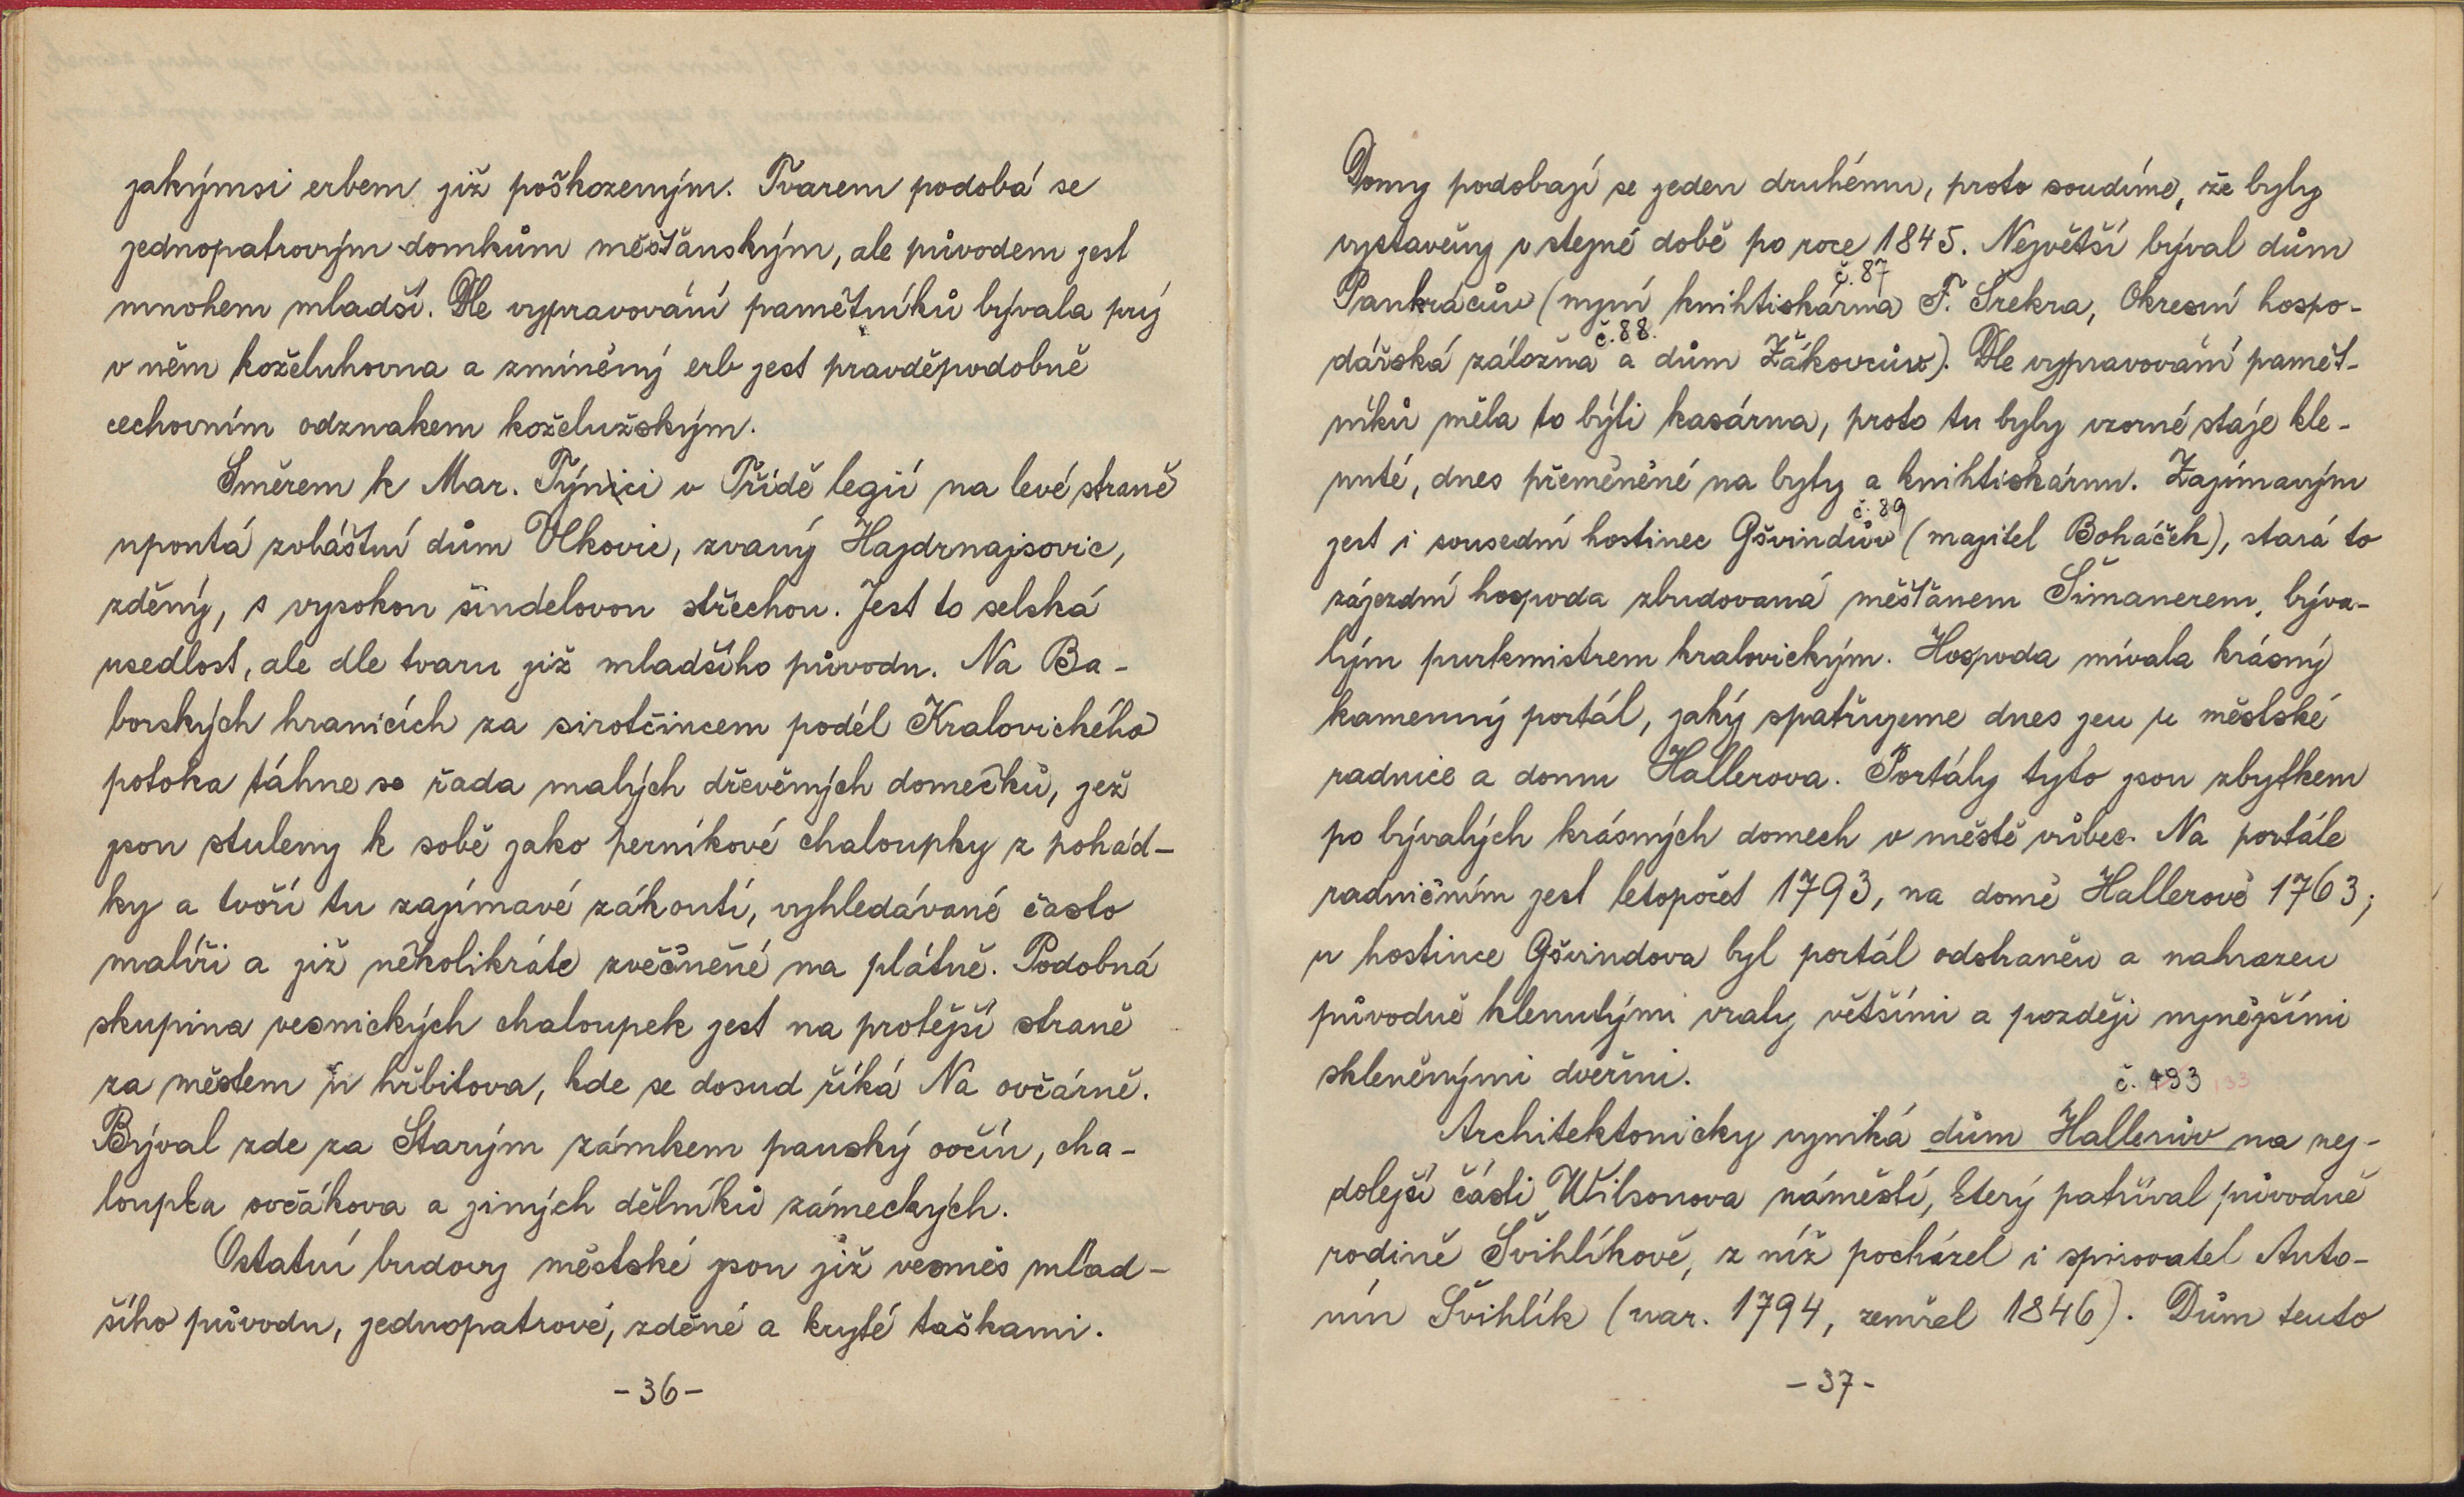 jakýmsi erbem již poškozeným. Tvarem podobá se
jednopatrovým domkům měšťanským, ale původem jest
mnohem mladší. Dle vypravování pamětníků bývala prý
v něm koželuhovna a zmíněný erb jest pravděpodobně
cechovním odznakem koželužským.
Směrem k Mar. Týnici v Třídě legií na levé straně
upoutá zvláštní dům Vlkovic, zvaný Hajdrnajsovic,
zděný, s vysokou šindelovou střechou. Jest to selská
usedlost, ale dle tvaru již mladšího původu. Na Ba-
borských hranicích za sirotčincem podél Kralovického
potoka táhne se řada malých dřevěných domečků, jež
jsou stuleny k sobě jako perníkové chaloupky z pohád-
ky a tvoří tu zajímavé zákoutí, vyhledávané často
malíři a již několikráte zvěčněné na plátně. Podobná
skupina vesnických chaloupek jest na protější straně
za městem u hřbitova, kde se dosud říká Na ovčárně.
Býval zde za Starým zámkem panský ovčín, cha-
loupka ovčákova a jiných dělníků zámeckých.
Ostatní budovy městské jsou již vesměs mlad-
šího původu, jednopatrové, zděné a kryté taškami.
-36-
Domy podobají se jeden druhému, proto soudíme, že byly
vystavěny v stejné době po roce 1845. Největší býval dům
č. 87
Pankrácův (nyní knihtiskárna F. Šrekra, Okresní hospo-
č. 88.
dářská záložna a dům Žákovcův). Dle vypravování pamět-
níků měla to býti kasárna, proto tu byly vzorné stáje kle-
nuté, dnes přeměněné na byty a knihtiskárnu. Zajímavým
č. 89
jest i sousední hostinec Gšvindův (majitel Boháček), stará to
zájezdní hospoda zbudovaná měšťanem Šimanerem, býva-
lým purkmistrem kralovickým. Hospoda mívala krásný
kamenný portál, jaký spatřujeme dnes jen u městské
radnice a domu Hallerova. Portály tyto jsou zbytkem
po bývalých krásných domech v městě vůbec. Na portále
radničním jest letopočet 1793, na domě Hallerově 1763;
u hostince Gšvindova byl portál odstraněn a nahrazen
původně klenutými vraty většími a později nynějšími
skleněnými dveřmi.
č. 133
Architektonicky vyniká dům Hallerův na nej-
dolejší části Wilsonova náměstí, který patříval původně
rodině Švihlíkově, z níž pocházel i spisovatel Anto-
nín Švihlík (nar. 1794, zemřel 1846). Dům tento
-37-